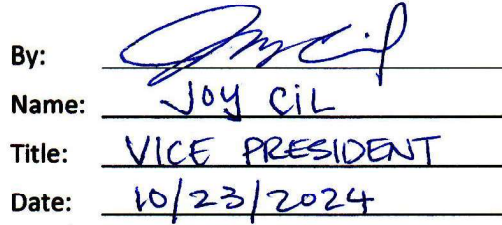 By:
Name: JOY CiL
Title: VICE PRESIDENT
Date: 10/23/2024